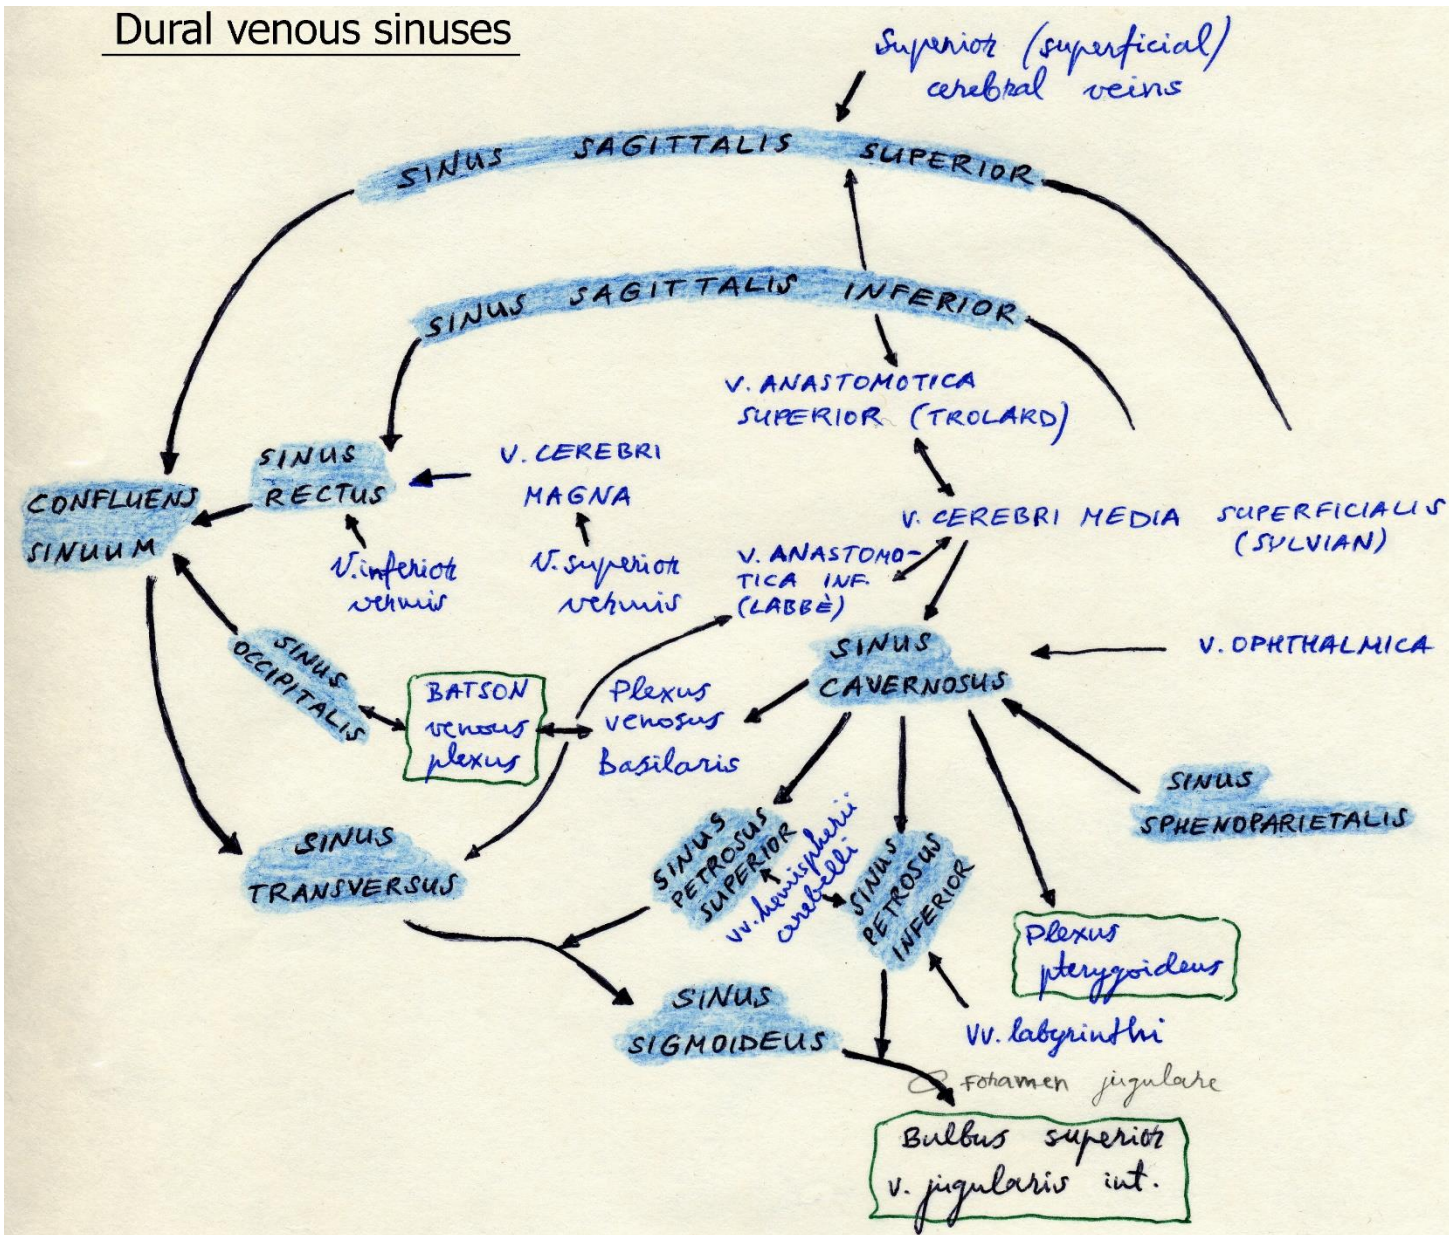 Dural venous sinuses
Superior (superficial)
cerebral veins
SINUS SAGITTALIS SUPERIOR
SINUS SAGITTALIS INFERIOR
V. ANASTOMOTICA
SUPERIOR (TROLARD)
SINUS
RECTUS
V. CEREBRI
MAGNA
CONFLUENS
SINUUM
V. CEREBRI MEDIA SUPERFICIALIS
(SYLVIAN)
V. inferior
vermis
V. superior
vermis
V. ANASTOMO-
TICA INF.
(LABBÈ)
SINUS
OCCIPITALIS
SINUS
CAVERNOSUS
V. OPHTHALMICA
BATSON
venous
plexus
Plexus
venosus
Basilaris
SINUS
SPHENOPARIETALIS
SINUS
TRANSVERSUS
SINUS
PETROSUS
SUPERIOR
vv. hemispherii
cerebelli
SINUS
PETROSUS
INFERIOR
Plexus
pterygoideus
SINUS
SIGMOIDEUS
Vv. labyrinthi
Foramen jugulare
Bulbus superior
v. jugularis int.